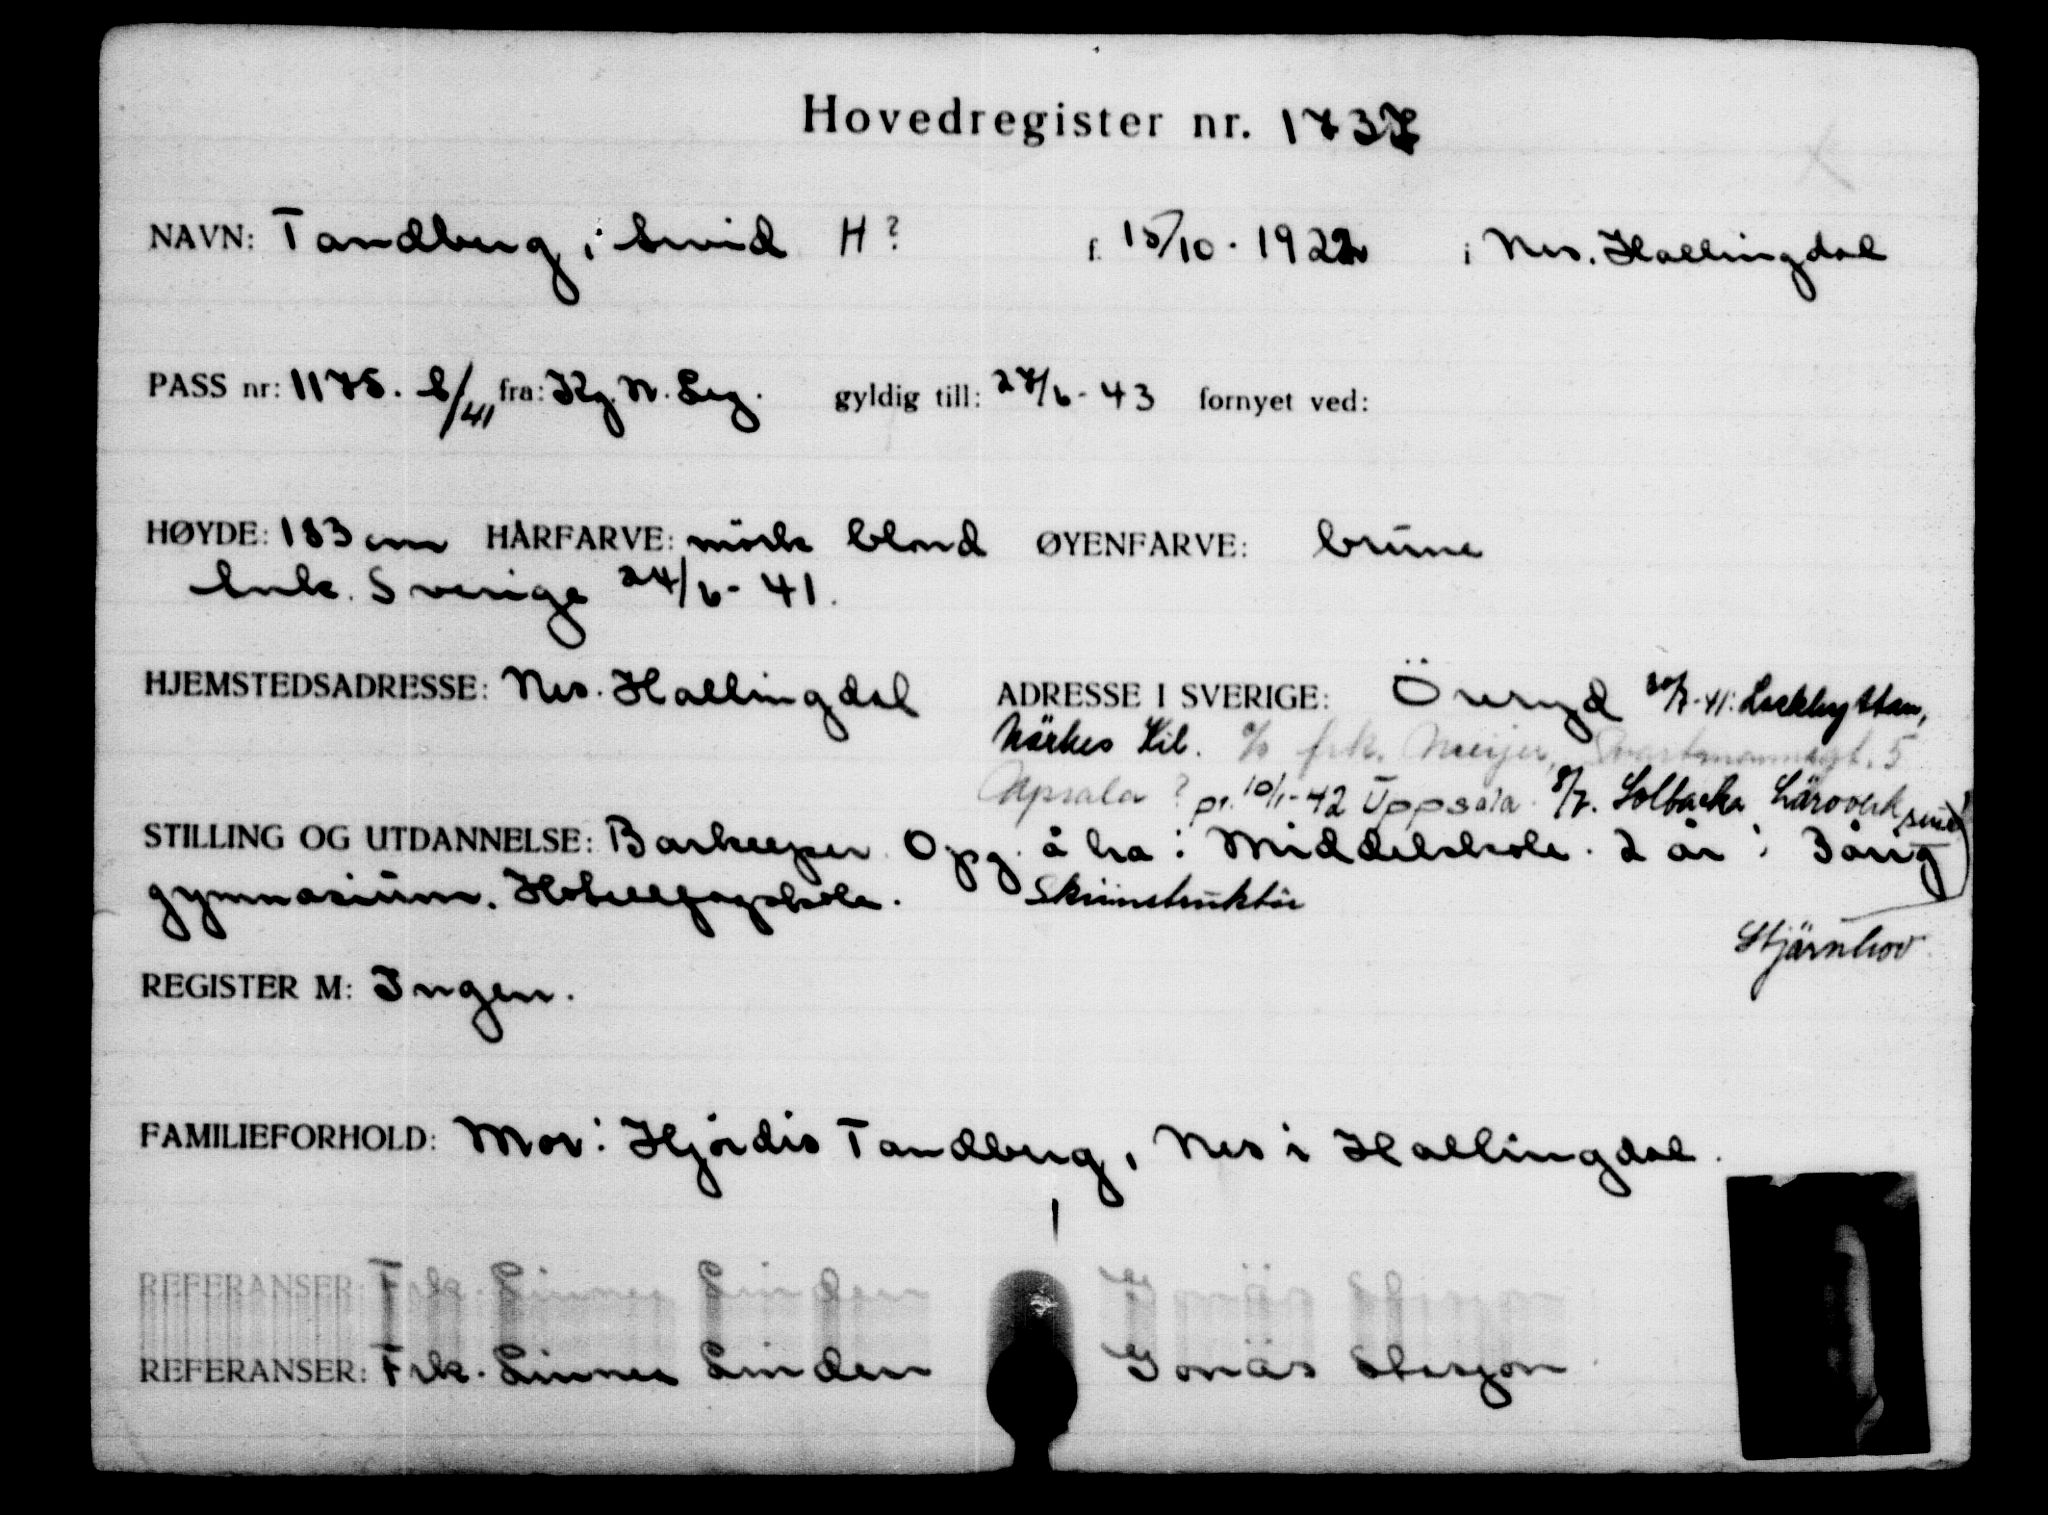 Hovedregister nr. 1737
NAVN: Tandberg, Svend H? f. 15/10 - 1922 i Nes. Hallingdal
PASS nr: 1175. b/41 fra: Kg. N. Leg. gyldig till: 27/6 - 43 fornyet ved:
HØYDE: 183 cm HÅRFARVE: mörk blond ØYENFARVE: brune
Ank. Sverige 24/6 - 41.
HJEMSTEDSADRESSE: Nes. Hallingdal ADRESSE I SVERIGE: Öreryd 20/7-41: Lockhyttan,
Närkes Kil. c/o frk. Meijer, Svartmannagt. 5
Upsala? pr. 10/1-42 Uppsala. 8/7. Solbacka Läroverk
STILLING OG UTDANNELSE: Barkeeper. Opg. å ha: Middelskole. 2 år i 3årig
gymnasium. Hotellfagskole. Skiinstruktör
Stjärnhov
REGISTER M: Ingen.
FAMILIEFORHOLD: Mor: Hjördis Tandberg, Nes i Hallingdal.
REFERANSER: Frk. Linnea Linden
REFERANSER: Frk. Linnea Linden Gonäs Stasjon